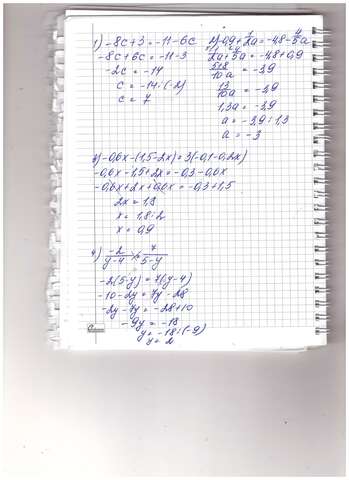 1) -8c+3=-11-6c
-8c+6c=-11-3
-2c=-14
c=-14:(-2)
c=7
2) -0,9+1/2a=-4,8-4/5a
1/2a+4/5a=-4,8+0,9
5+8/10a=-3,9
13/10a=-3,9
1,3a=-3,9
a=-3,9:1,3
a=-3
3) -0,6x-(1,5-2x)=3(-0,1-0,2x)
-0,6x-1,5+2x=-0,3-0,6x
-0,6x+2x+0,6x=-0,3+1,5
2x=1,8
x=1,8:2
x=0,9
4) -2/y-4=7/5-y
-2(5-y)=7(y-4)
-10-2y=7y-28
-2y-7y=-28+10
-9y=-18
y=-18:(-9)
y=2